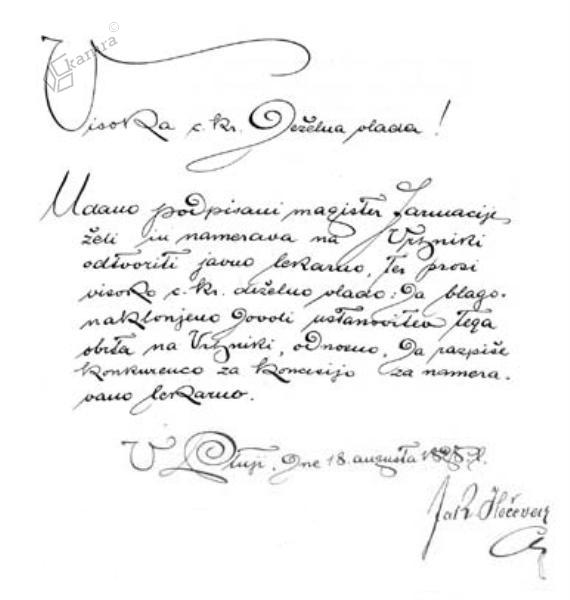 kamra ©
Visoka c. kr. Deželna vlada!
Udano podpisani magister farmacije
želi in namerava na Vrhniki
odtvoriti javno lekarno, ter prosi
visoko c. kr. deželno vlado: da blago-
naklonjeno dovoli ustanovitev tega
obrta na Vrhniki, odnosno, da razpiše
konkurenco za koncesijo za namera-
vano lekarno.
V Ptuji, dne 18. avgusta
Jak Hočevar